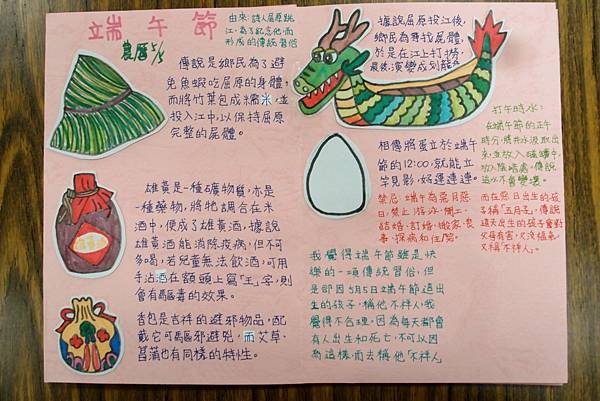 端午節
農曆5/5
由來:詩人屈原跳
江,為了紀念他,而
形成的傳統習俗
傳說是鄉民為了避
免魚蝦吃屈原的身體,
而將竹葉包成糯米,並
投入江中,以保持屈原
完整的屍體。
雄黃是一種礦物質,亦是
一種藥物,將牠調合在米
酒中,便成了雄黃酒,據說
雄黃酒能消除疫病,但不可
多喝,若兒童無法飲酒,可用
手沾酒在額頭上寫「王」字,則
會有驅毒的效果。
香包是吉祥的避邪物品,配
戴它可驅邪避兇,而艾草、
菖蒲也有同樣的特性。
據說屈原投江後,
鄉民為尋找屍體,
於是在江上打撈,
最後,演變成划龍舟
相傳將蛋立於端午
節的12:00,就能立
竿見影,好運連連。
禁忌:端午為惡月惡
日,禁止游泳、開工、
結婚、訂婚、搬家、喪
事、探病和住院。
打午時水:
在端午節的正午
時分,將井水汲取出
來,並放入罐中,
放入陰暗處,傳說
這水不會變壞。
而在惡日出生的孩
子稱「五月子」,傳說
這天出生的孩子會對
父母有害,又沒福氣,
又稱不祥人。
我覺得端午節雖是快
樂的一項傳統習俗,但
是卻因5月5日端午節這出
生的孩子,稱他不祥人,我
覺得不合理,因為每天都會
有人出生和死亡,不可以因
為這樣,而去稱他「不祥人」